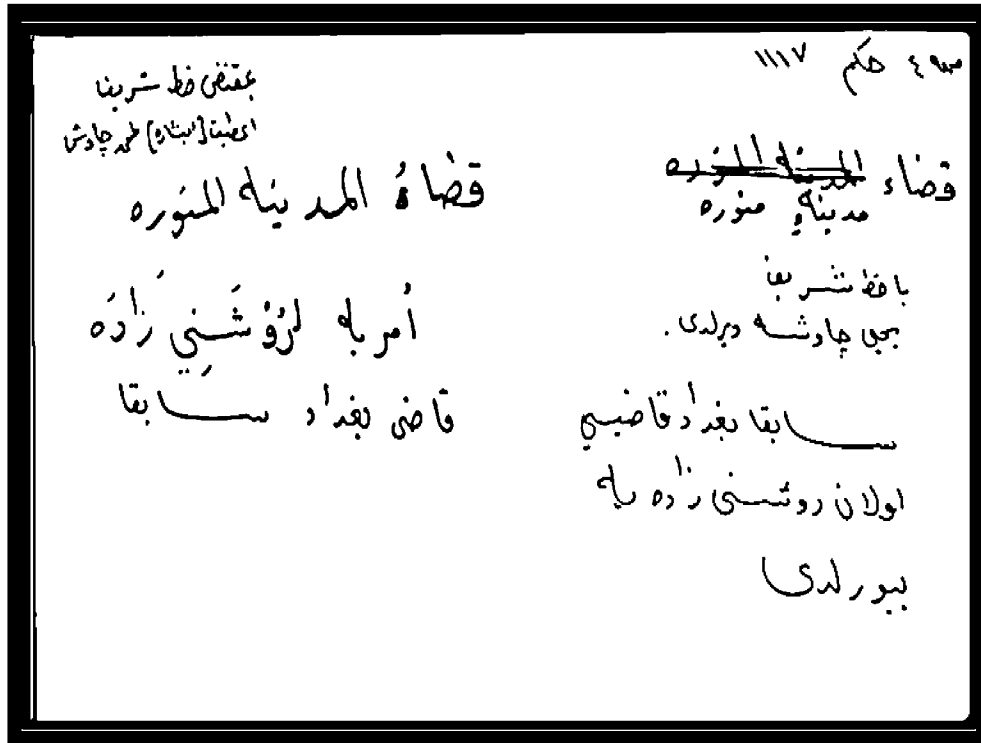 حكم ١١١٧
قضاء المدينه المنوره
مدينۀ منوره
با خط شريف
يحيى چاوشه ويرلدى.
سابقا بغداد قاضيسي
اولان روشنى زاده يه
بيورلدى
بمقتضى خط شريف
چاوش
قضاءُ المدينه المنوره
أمر به لرُوشَني زَادَه
قاضى بغداد سابقا